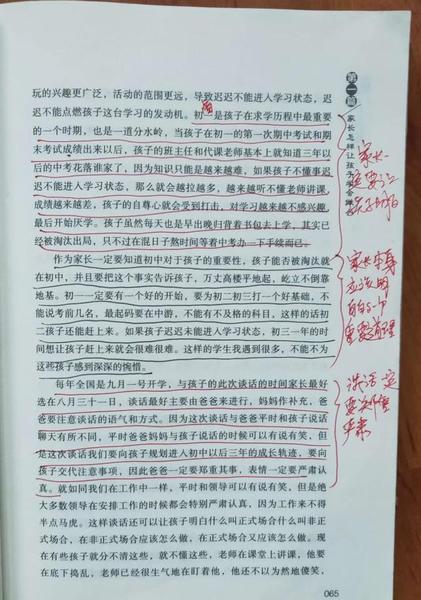 玩的兴趣更广泛，活动的范围更远，导致迟迟不能进入学习状态，迟
迟不能点燃孩子这台学习的发动机。初一是孩子在求学历程中最重要
的一个时期，也是一道分水岭，当孩子在初一的第一次期中考试和期
末考试成绩出来以后，孩子的班主任和代课老师基本上就知道三年以
后的中考花落谁家了，因为知识只能是越来越难，如果孩子不懂事迟
迟不能进入学习状态，那么就会越拉越多，越来越听不懂老师讲课，
成绩越来越差，孩子的自尊心就会受到打击，对学习越来越不感兴趣，
最后开始厌学。孩子虽然每天也是早出晚归背着书包去上学，其实已
经被淘汰出局，只不过在混日子熬时间等着中考办一下手续而已。
作为家长一定要知道初中对于孩子的重要性，孩子能否被淘汰就
在初中，并且要把这个事实告诉孩子，万丈高楼平地起，屹立不倒靠
地基。初一一定要有一个好的开始，要为初二初三打一个好基础，不
能说考前几名，最起码要在中游，不能有不及格的科目，这样的话初
二孩子还能赶上来。如果孩子迟迟未能进入学习状态，初三一年的时
间想让孩子赶上来就会很难很难。这样的学生我遇到很多，不能不为
这些孩子感到深深的惋惜。
每年全国是九月一号开学，与孩子的此次谈话的时间家长最好
选在八月三十一日，谈话最好主要由爸爸来进行，妈妈作补充，爸
爸要注意谈话的语气和方式。因为这次谈话与爸爸平时和孩子说话
聊天有所不同，平时爸爸妈妈与孩子说话的时候可以有说有笑，但
是这次谈话我们要向孩子规划进入初中以后三年的成长轨迹，要向
孩子交代注意事项，因此爸爸一定要郑重其事，表情一定要严肃认
真。就如同我们在工作中一样，平时和领导可以有说有笑，但是绝
大多数领导在安排工作的时候都会特别严肃认真，因为工作来不得
半点马虎。这样谈话还可以让孩子明白什么叫正式场合什么叫非正
式场合，在非正式场合应该怎么做，在正式场合又应该怎么做。现
在有些孩子就分不清这些，就不懂这些，老师在课堂上讲课，他要
在底下捣乱，老师已经很生气地在盯着他，他还不以为然地傻笑，
065
第一篇
家长怎样让孩子学会
家长一
定要
家长本身
应该明
白
重要
谈话一定
要
严肃